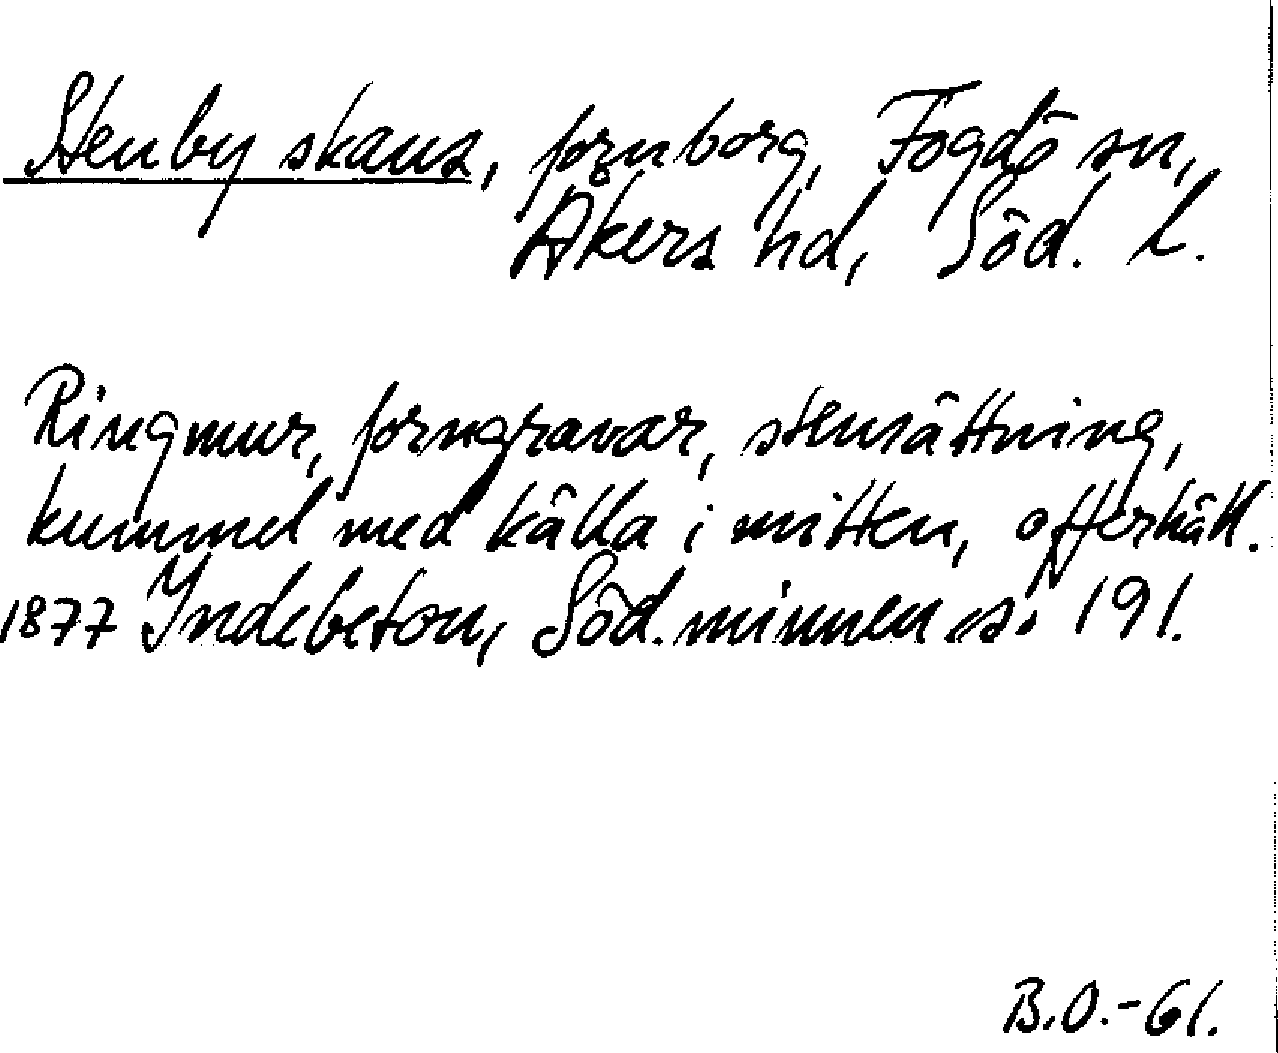 Stenby skans, fornborg, Fogdö sn,
Åkers hd, Söd. l.
Ringmur, forngravar, stensättning,
kummel med källa i mitten, offerhäll.
1877 Indebetou, Söd. minnen s. 191.
B.O.-61.